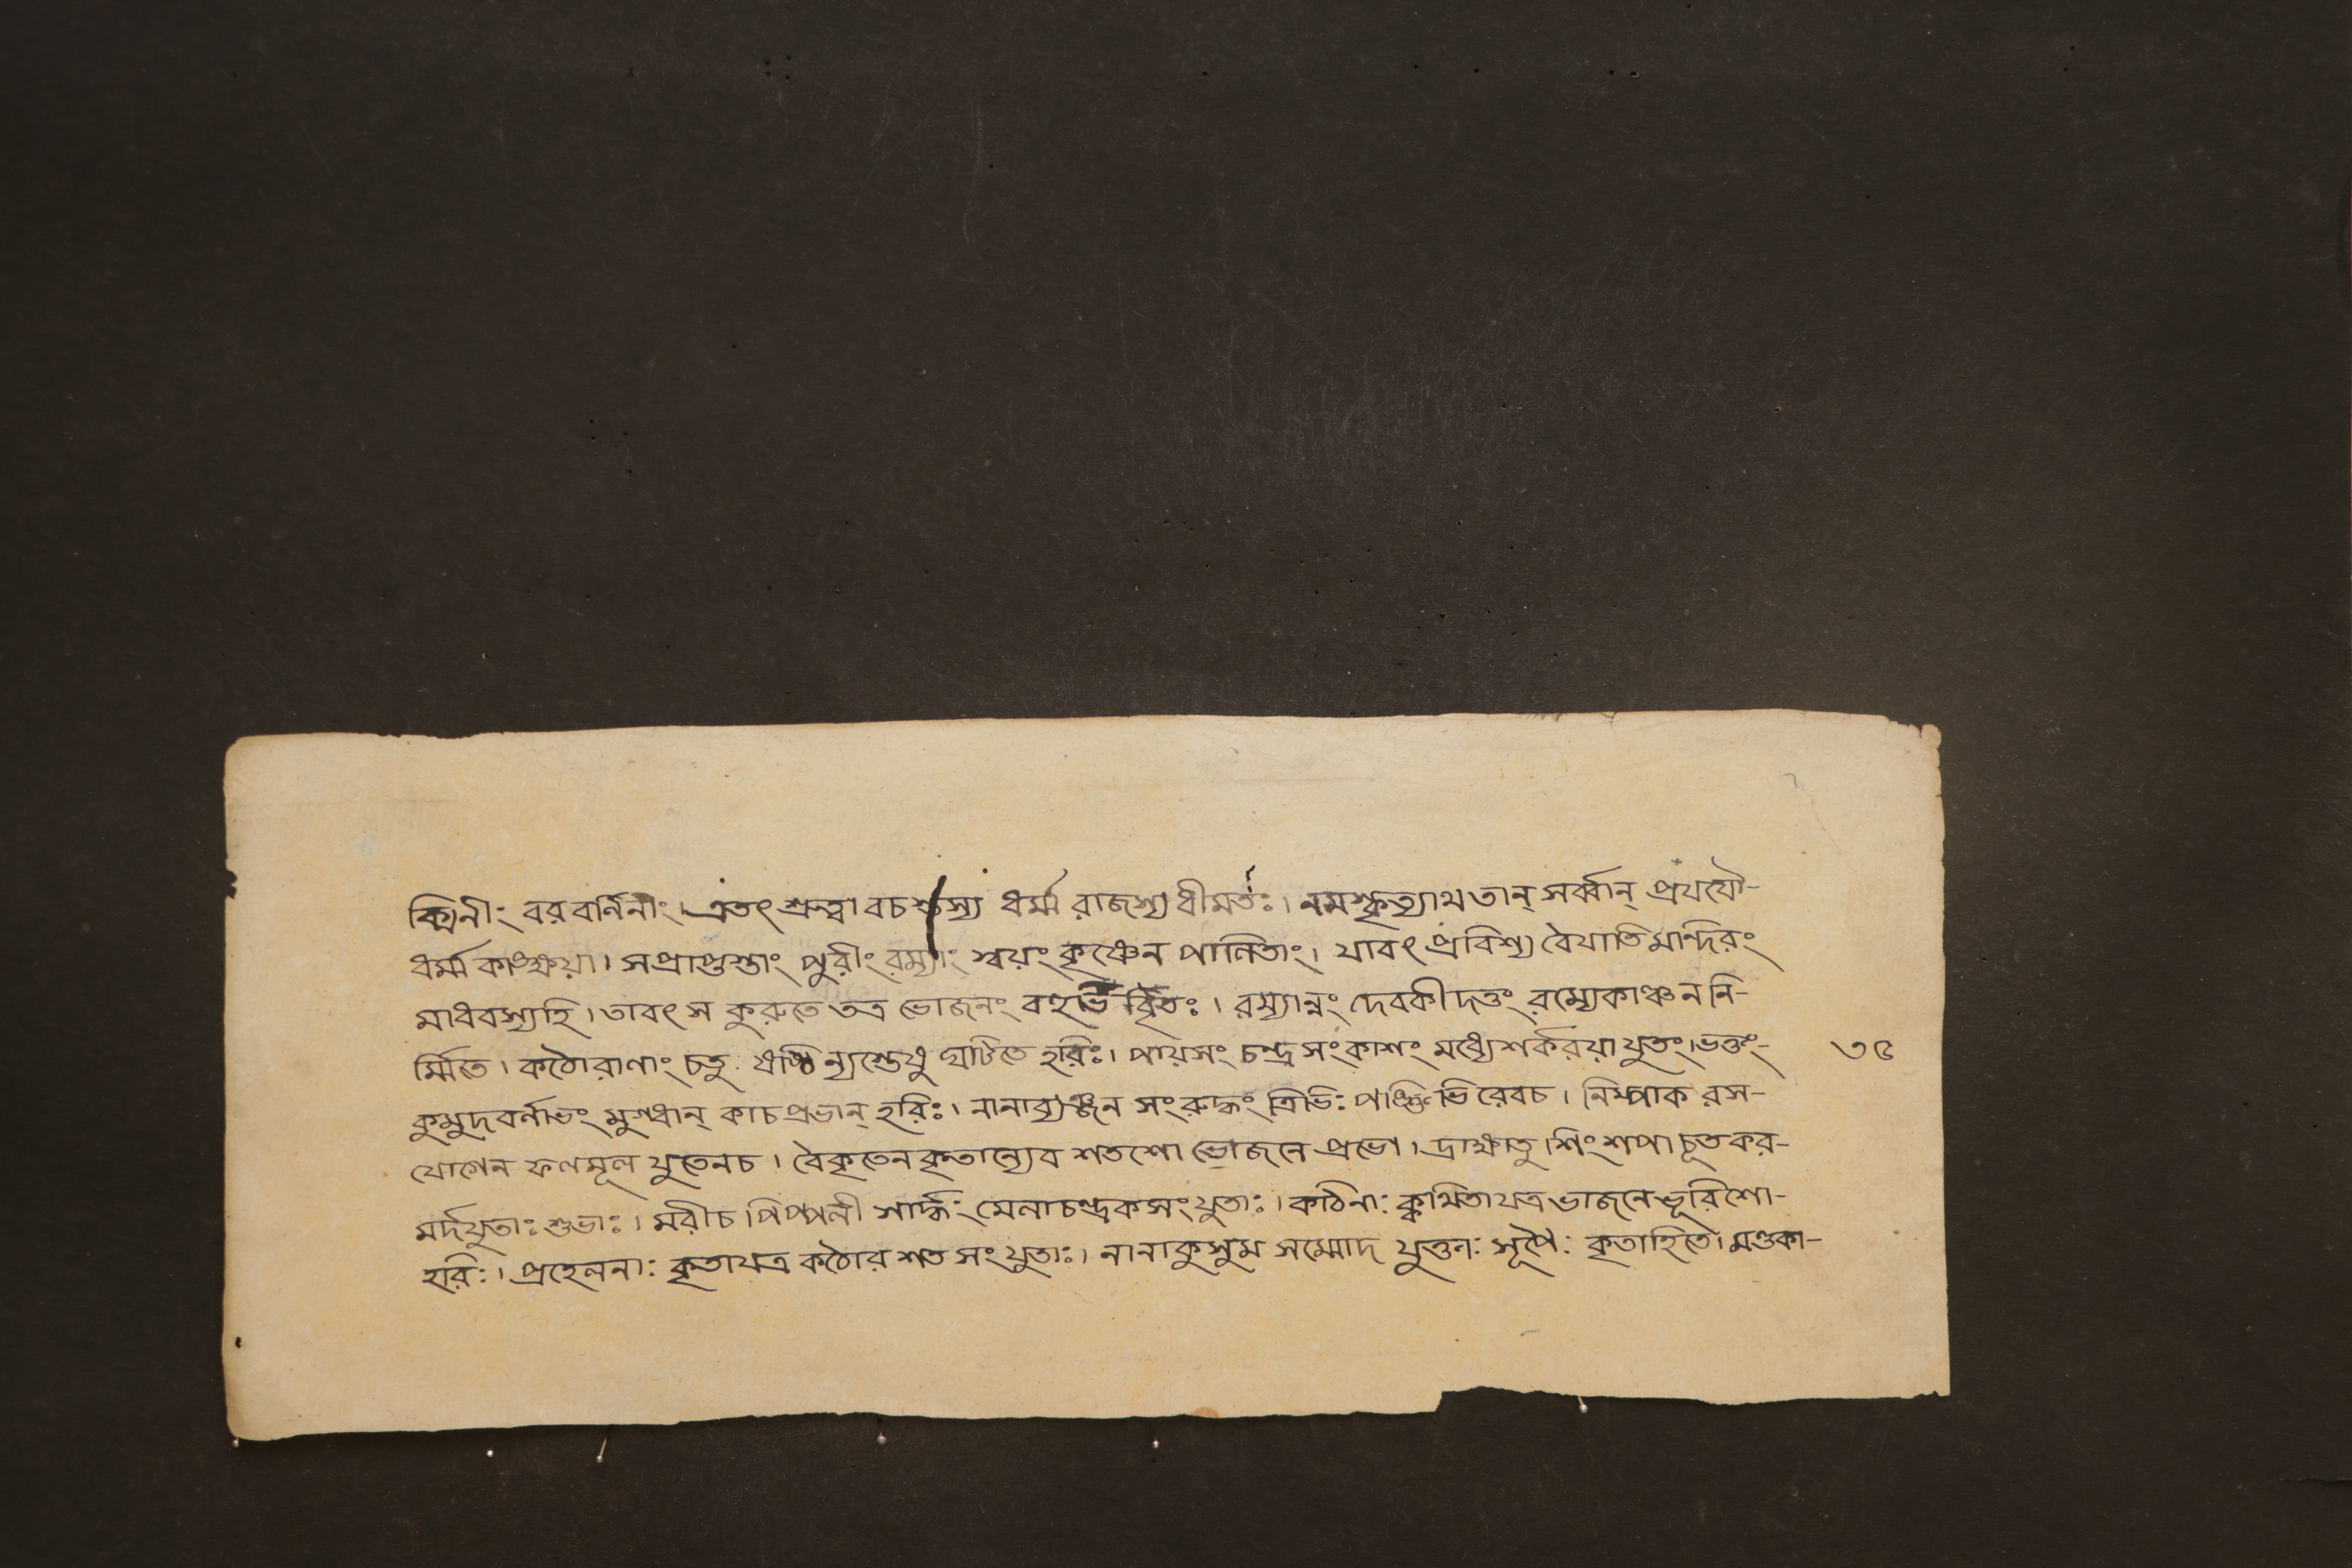 ক্মিনীং বরবর্নিনীং। এতৎ শ্রুত্বা বচস্তস্য ধর্ম্ম রাজস্য ধীমতঃ। নমস্কৃত্যাথ তান্ সর্ব্বান্ প্রযযৌ-
ধর্ম্ম কাঙ্ক্ষয়া। সপ্রাপ্তস্তাং পুরীং রম্যাং স্বয়ং কৃষ্ণেন পালিতাং। যাবৎ প্রবিশ্য বৈযাতি মন্দিরং
মাধবস্যহি। তাবৎ স কুরুতে তত্র ভোজনং বহুভির্বৃতঃ। রম্যান্নং দেবকীদত্তং রম্যেকাঞ্চন নি-
র্ম্মিতে। কঠোরাণাং চতুঃ ষষ্ঠি ন্যস্তেষু ঘটিতে হরিঃ। পায়সং চন্দ্র সংকাশং মধ্যেশর্করয়া যুতং। ভক্তং- ৩৫
কুমুদবর্নাভং মুগ্ধান্ কাচপ্রভান্ হরিঃ। নানাব্যঞ্জন সংরুদ্ধং ত্রিভিঃ পঙ্ক্তিভি রেবচ। নিম্পাক রস-
যোগেন ফলমূল যুতেনচ। বৈকৃতেনকৃতান্যেব শতশো ভোজনে প্রভো। দ্রাক্ষাতু। শিংশপা চূত কর-
মর্দযুতাঃ শুভাঃ। মরীচ পিপ্পলী সার্দ্ধং মেলাচন্দ্রকসংযুতাঃ। কঠিনাঃ ক্কথিতাযত্র ভাজনে ভূরিশো-
হরিঃ। প্রহেলনাঃ কৃতাযত্র কঠোর শত সংযুতাঃ। নানাকুসুম সম্মোদ যুক্তাঃ সূপৈঃ কৃতাহিতে। মণ্ডকা-